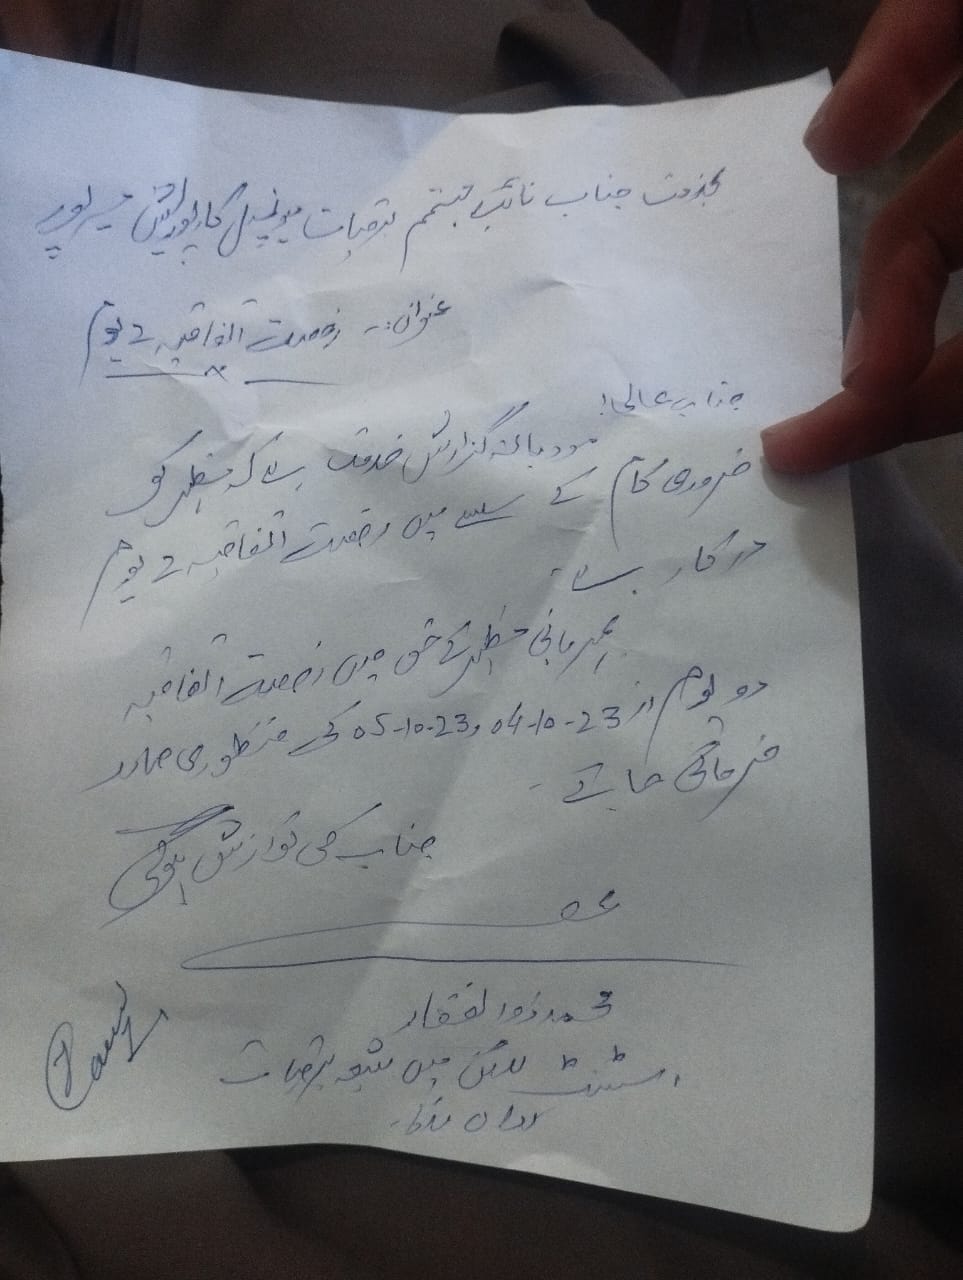 بخدمت جناب نائب مہتمم برقیات میونسپل کارپوریشن میرپور
عنوان:۔ رخصت اتفاقیہ 2 یوم
جناب عالی!
مودبانہ گزارش خدمت ہے کہ مظہر کو
ضروری کام کے سلسلے میں رخصت اتفاقیہ 2 یوم
درکار ہے۔
مہربانی مظہر کے حق میں رخصت اتفاقیہ
دو یوم از 04-10-23، 05-10-23 کی منظوری صادر
فرمائی جائے۔
جناب کی نوازش ہوگی
محمد ذوالفقار
اسسٹنٹ لائن مین شعبہ برقیات